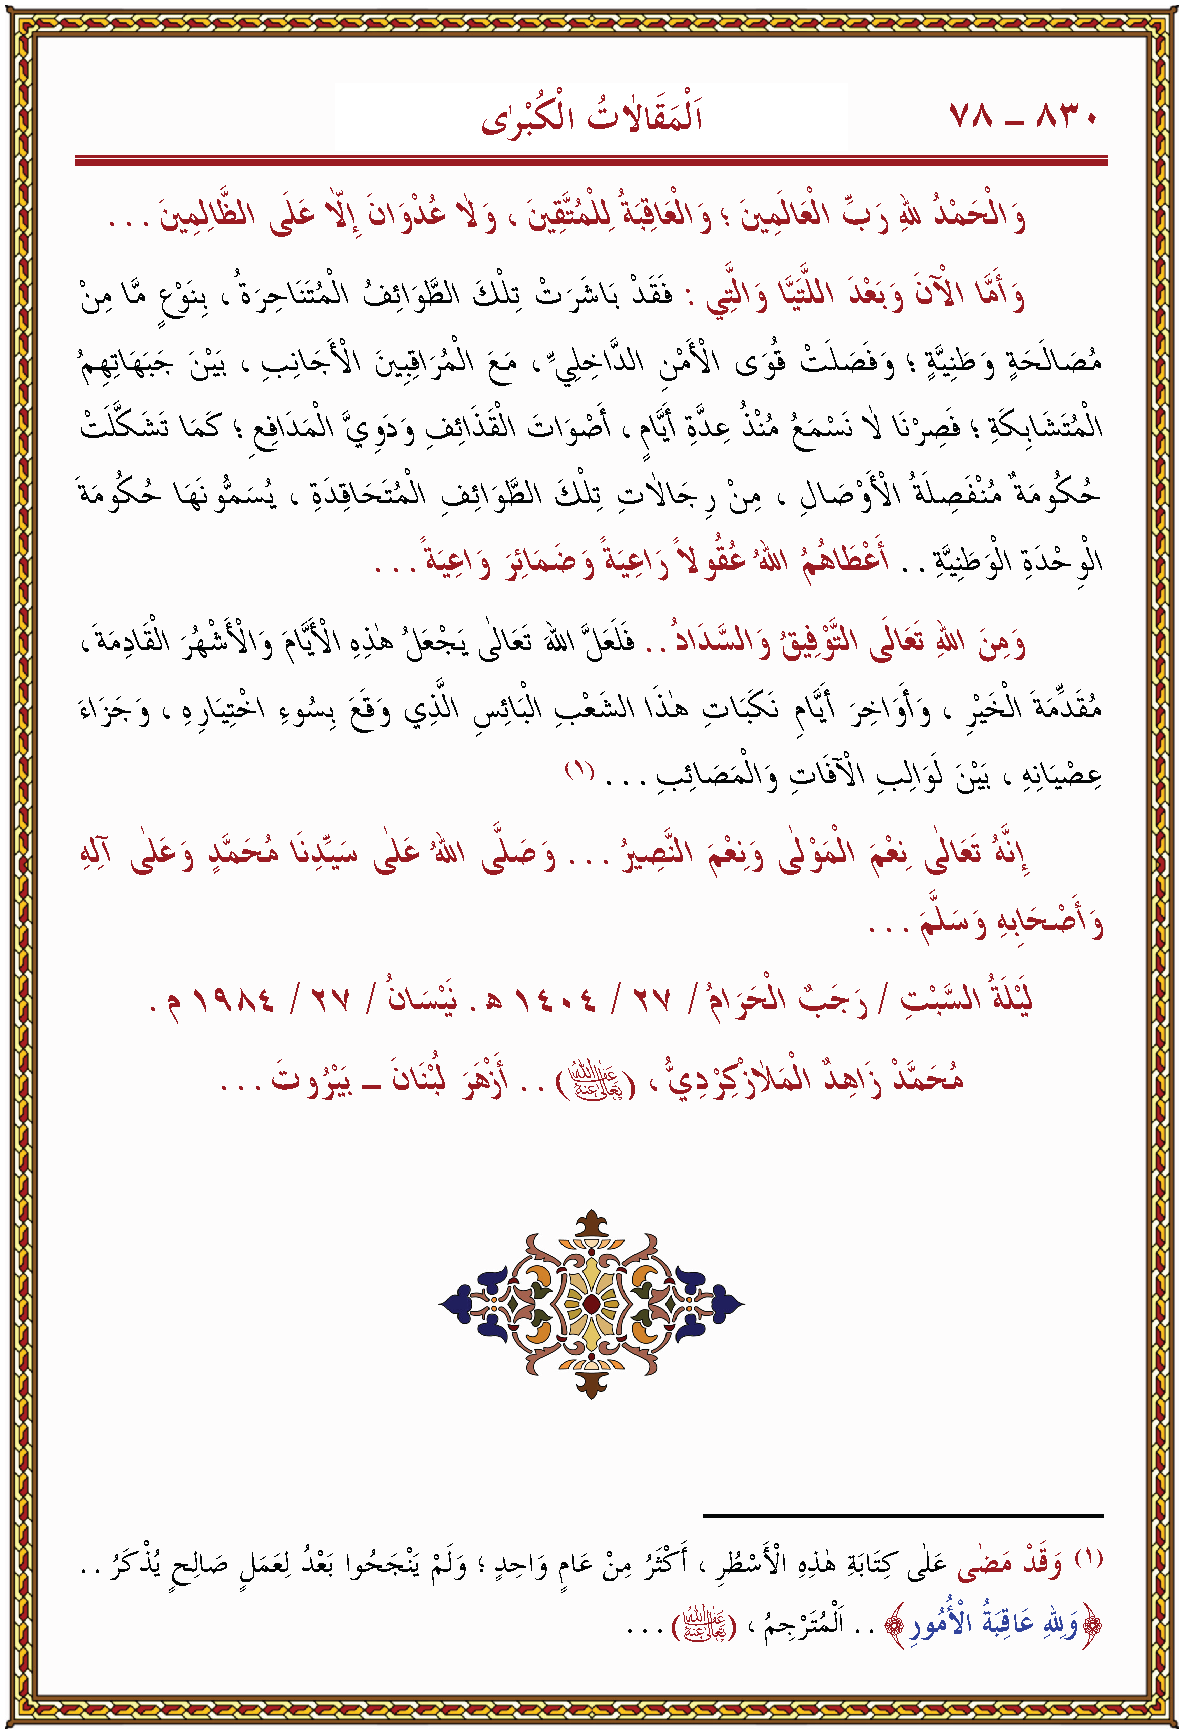 ٨٣٠ – ٧٨
اَلْمَقَالَاتُ الْكُبْرٰى
وَالْحَمْدُ لِلهِ رَبِّ الْعَالَمِينَ ؛ وَالْعَاقِبَةُ لِلْمُتَّقِينَ ، وَلَا عُدْوَانَ إِلَّا عَلَى الظَّالِمِينَ . . .
وَأَمَّا الْآنَ وَبَعْدَ اللتَّيَّا وَالَّتِي : فَقَدْ بَاشَرَتْ تِلْكَ الطَّوَائِفُ الْمُتَنَاحِرَةُ ، بِنَوْعٍ مَّا مِنْ
مُصَالَحَةٍ وَطَنِيَّةٍ ؛ وَفَصَلَتْ قُوَى الْأَمْنِ الدَّاخِلِيِّ ، مَعَ الْمُرَاقِبِينَ الْأَجَانِبِ ، بَيْنَ جَبَهَاتِهِمُ
الْمُتَشَابِكَةِ ؛ فَصِرْنَا لَا نَسْمَعُ مُنْذُ عِدَّةِ أَيَّامٍ ، أَصْوَاتَ الْقَذَائِفِ وَدَوِيَّ الْمَدَافِعِ ؛ كَمَا تَشَكَّلَتْ
حُكُومَةٌ مُنْفَصِلَةُ الْأَوْصَالِ ، مِنْ رِجَالَاتِ تِلْكَ الطَّوَائِفِ الْمُتَحَاقِدَةِ ، يُسَمُّونَهَا حُكُومَةَ
الْوِحْدَةِ الْوَطَنِيَّةِ . . أَعْطَاهُمُ اللهُ عُقُولاً رَاعِيَةً وَضَمَائِرَ وَاعِيَةً . . .
وَمِنَ اللهِ تَعَالَى التَّوْفِيقُ وَالسَّدَادُ . . فَلَعَلَّ اللهَ تَعَالٰى يَجْعَلُ هٰذِهِ الْأَيَّامَ وَالْأَشْهُرَ الْقَادِمَةَ ،
مُقَدِّمَةَ الْخَيْرِ ، وَأَوَاخِرَ أَيَّامِ نَكَبَاتِ هٰذَا الشَعْبِ الْبَائِسِ الَّذِي وَقَعَ بِسُوءِ اخْتِيَارِهِ ، وَجَزَاءَ
عِصْيَانِهِ ، بَيْنَ لَوَالِبِ الْآفَاتِ وَالْمَصَائِبِ . . . (١)
إِنَّهُ تَعَالٰى نِعْمَ الْمَوْلٰى وَنِعْمَ النَّصِيرُ . . . وَصَلَّى اللهُ عَلٰى سَيِّدِنَا مُحَمَّدٍ وَعَلٰى آلِهِ
وَأَصْحَابِهِ وَسَلَّمَ . . .
لَيْلَةُ السَّبْتِ / رَجَبٌ الْحَرَامُ / ٢٧ / ١٤٠٤ ه . نَيْسَانُ / ٢٧ / ١٩٨٤ م .
مُحَمَّدْ زَاهِدٌ الْمَلَازْكِرْدِيُّ ، (رَضِيَ اللهُ تَعَالَى عَنْهُ) . . أَزْهَرَ لُبْنَانَ – بَيْرُوتَ . . .
(١) وَقَدْ مَضٰى عَلٰى كِتَابَةِ هٰذِهِ الْأَسْطُرِ ، أَكْثَرُ مِنْ عَامٍ وَاحِدٍ ؛ وَلَمْ يَنْجَحُوا بَعْدُ لِعَمَلٍ صَالِحٍ يُذْكَرُ . .
﴿وَلِلهِ عَاقِبَةُ الْأُمُورِ﴾ . . اَلْمُتَرْجِمُ ، (رَضِيَ اللهُ تَعَالَى عَنْهُ) . . .